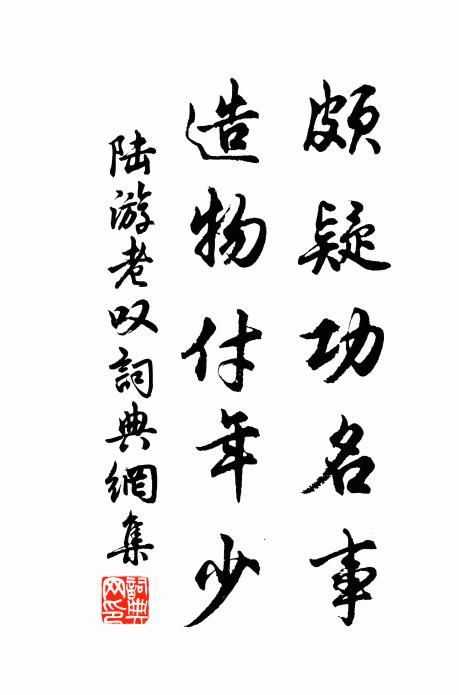 頗疑功名事
造物付年少
陆游老叹詞典網集
詞典网印